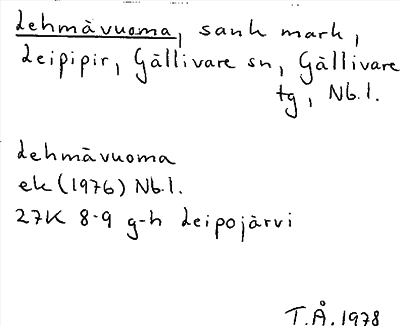 Lehmävuoma, sank mark,
Leipipir, Gällivare sn, Gällivare
tg, Nb.l.
Lehmävuoma
ek (1976) Nb.l.
27K 8-9 g-h Leipojärvi
T.Å. 1978